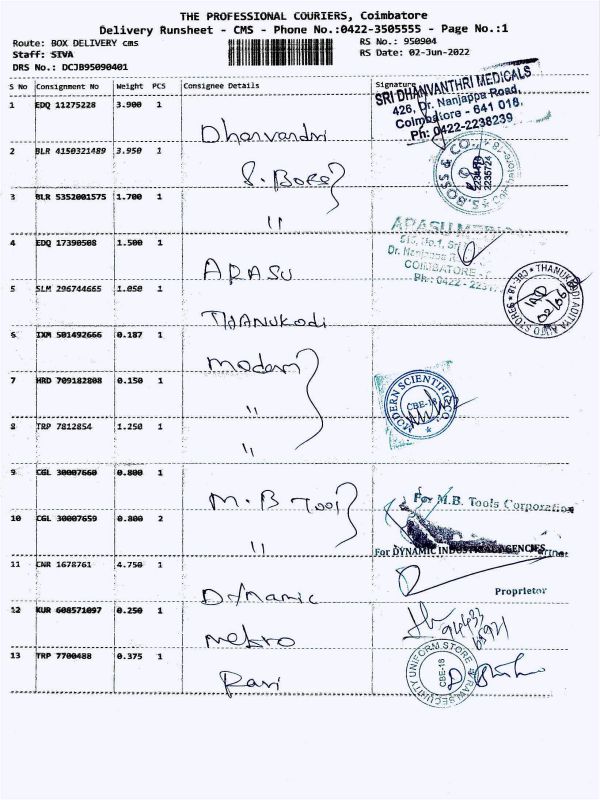 THE PROFESSIONAL COURIERS, Coimbatore
Delivery Runsheet - CMS - Phone No.:0422-3505555 - Page No.:1
Route: BOX DELIVERY cms
RS No.: 950904
Staff: SIVA
RS Date: 02-Jun-2022
DRS No.: DCJB95090401
S No Consignment No Weight PCS Consignee Details Signature
1 EDQ 11275228 3.900 1
Dhanvandri
SRI DHANVANTHRI MEDICALS
426, Dr. Nanjappa Road,
Coimbatore - 641 018.
Ph: 0422-2238239
2 BLR 4150321489 3.950 1
S. Bose
S. BOSS & CO.
Coimbatore-18
2235724
3 BLR 5352001575 1.700 1
"
4 EDQ 17390508 1.500 1
ARASU
ARASU
Dr. Nanjappa
COIMBATORE
Ph: 0422 -
5 SLM 296744665 1.050 1
THANUKODI
THANUKODI ADITYA AUTO STORES * CBE-18 *
6 IXM 501492666 0.187 1
modern
7 HRD 709182808 0.150 1
"
MODERN SCIENTIFIC CO
CBE-18
8 TRP 7812854 1.250 1
"
9 CGL 30007660 0.800 1
M.B Tool
For M.B. Tools Corporation
Partner
10 CGL 30007659 0.800 2
"
For DYNAMIC INDUSTRIAL AGENCIES
11 CNR 1678761 4.750 1
Dynamic
Proprietor
12 KUR 608571097 0.250 1
metro
13 TRP 7700488 0.375 1
Ravi
RAVI SECURITY UNIFORM STORE
CBE-18